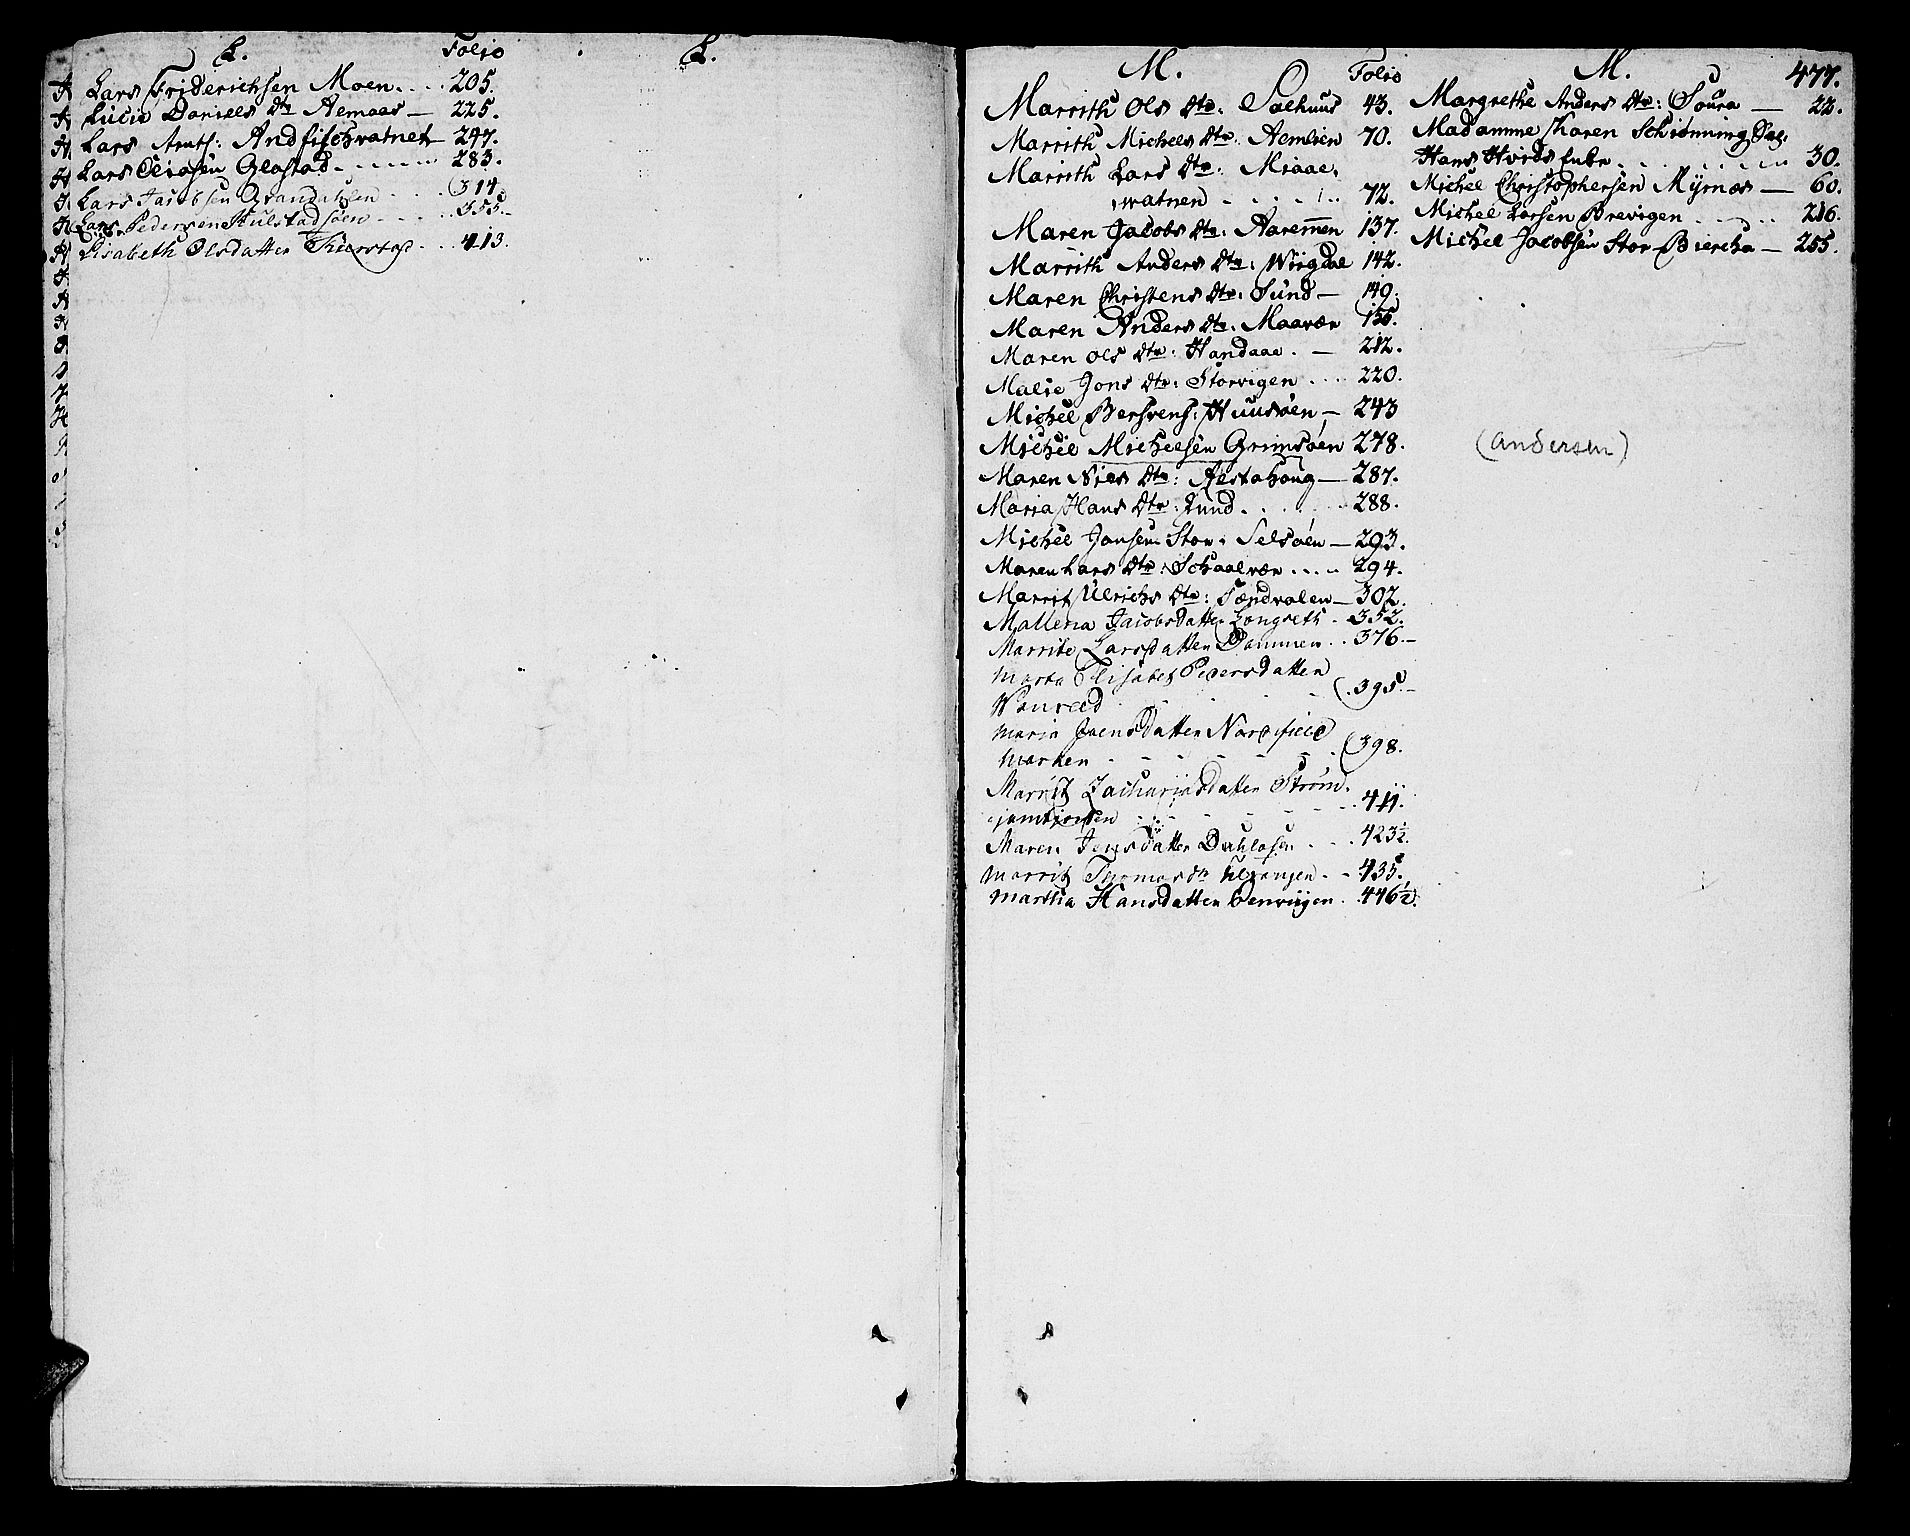 L. Folio L.
Lars Friderichsen Moen. . . . 205.
Lucie Daniels Dtr Aemaes — 225.
Lars Arntf: Andfischvatnet 247.
Lars Eliasen Glastad . . . . . 283.
Lars Jacobsen Grandahlen . . . . 314.
Lars Pedersen Hulstadsøen . . . . 355.
Lisabeth Olsdatter . . . 413.
M. Folio
Marrith Ols Dtr: Saehuus 43.
Marrith Michels Dtr: Aemlien 70.
Marrith Lars Dtr: Miaae,
vatnen . . . . . 72.
Maren Jacobs Dtr: Aaremen 137.
Marrith Anders Dtr: Wiigdal 142.
Maren Christens Dtr: Sund — 149.
Maren Anders Dtr: Maavær 155.
Maren Ols Dtr: Handaae . — 212.
Malie Jons Dtr: Storvigen . . . . 220.
Michel Bersvens: Huusøen — 243
Michel Michelsen Grimsøen 278.
Maren Niels Dtr: Alstahoug — 287.
Maria Hans Dtr: Lund . . . . 288.
Michel Jonsen Stor: Selsøen — 293.
Maren Lars Dtr: Schaalvær . . . . 294.
Marrit Ulrichs Dtr: Sandvalen — 302.
Mallena Jacobsdatter Longseth . 352.
Marrite Larsdatter Dommen . . 376.
Marta Elisabet Pedersdatter
. . . 395.
Maria Joensdatter Nordfield
marken . . . . . 398.
Marrit Zachariasdatter Strøm,
. . . . . 411.
Maren Jensdatter Dahlosen . . . 423½.
Marrit Thomasdtr . . 435.
Martha Hansdatter . 446½.
M. 477.
Margrethe Anders Dtr: Soura — 22.
Madamme Karen Schiønning Sal.
Hans Hvids Enke . . . . . 30.
Michel Christophersen Mÿrnæs — 60.
Michel Larsen Brevigen . . . . 216.
Michel Jacobsen Stor Biercha — 255.
(Andersen)